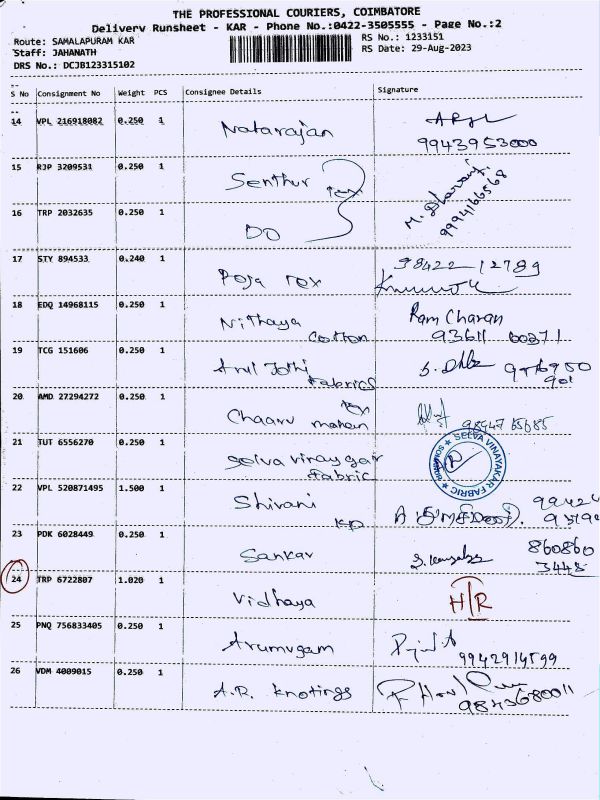 THE PROFESSIONAL COURIERS, COIMBATORE
Delivery Runsheet - KAR - Phone No.:0422-3505555 - Page No.:2
Route: SAMALAPURAM KAR
RS No.: 1233151
Staff: JAHANATH
RS Date: 29-Aug-2023
DRS No.: DCJB123315102
S No Consignment No Weight PCS Consignee Details Signature
14 VPL 216918082 0.250 1 Natarajan
9943953000
15 RJP 3209531 0.250 1 Senthur Tex M. Dharani
9994166568
16 TRP 2032635 0.250 1 DO
17 STY 894533 0.240 1 Poja Tex 98422-12789
18 EDQ 14968115 0.250 1 Nithaya Cotton Ram Charan
93611 00271
19 TCG 151606 0.250 1 Arul Jothi Fabrics
20 AMD 27294272 0.250 1 Chaaru mohan Tex 98947 65685
21 TUT 6556270 0.250 1 Selva vinaygar Fabric
SELVA VINAYAKAR FABRIC
22 VPL 520871495 1.500 1 Shivani KP
99424
23 PDK 6028449 0.250 1 Sankar 860860
3448
24 TRP 6722807 1.020 1 Vidhaya H/R
25 PNQ 756833405 0.250 1 Arumugam
9942914599
26 VDM 4009015 0.250 1 A.R. knotings
9843680011